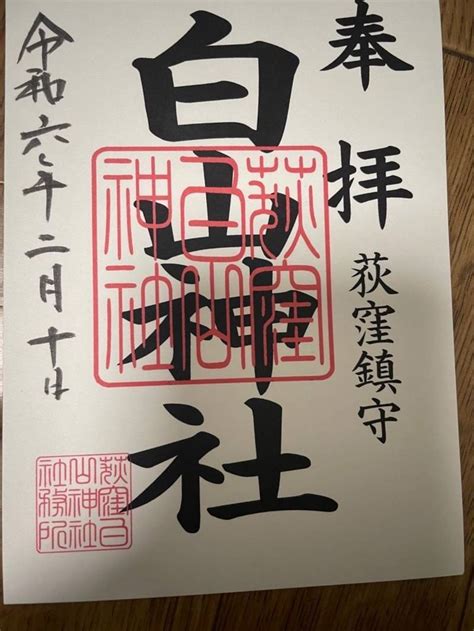 奉拝
荻窪鎮守
白山神社
荻窪
白山
神社
令和六年二月十日
荻窪白
山神社
社務所